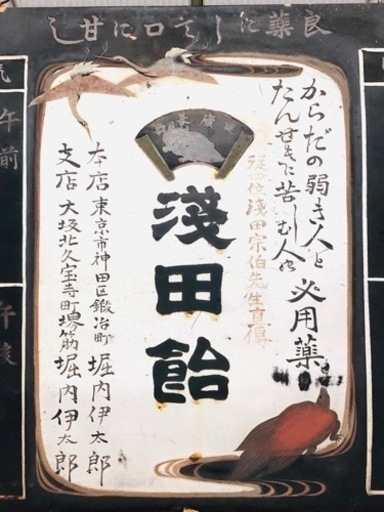 良薬にして口に甘し
からだの弱き人と
たんせきに苦しむ人の
必用薬
淺田宗伯先生直傳
淺田飴
本店 東京市神田区鍛冶町 堀内伊太郎
支店 大坂北久宝寺町堺筋 堀内伊太郎
午前
午後